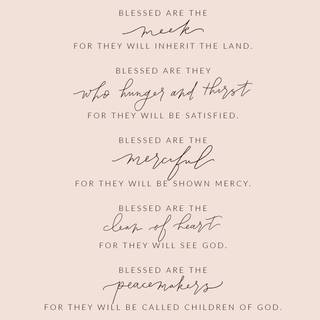 BLESSED ARE THE
meek
FOR THEY WILL INHERIT THE LAND.
BLESSED ARE THEY
who hunger and thirst
FOR THEY WILL BE SATISFIED.
BLESSED ARE THE
merciful
FOR THEY WILL BE SHOWN MERCY.
BLESSED ARE THE
clean of heart
FOR THEY WILL SEE GOD.
BLESSED ARE THE
peacemakers
FOR THEY WILL BE CALLED CHILDREN OF GOD.